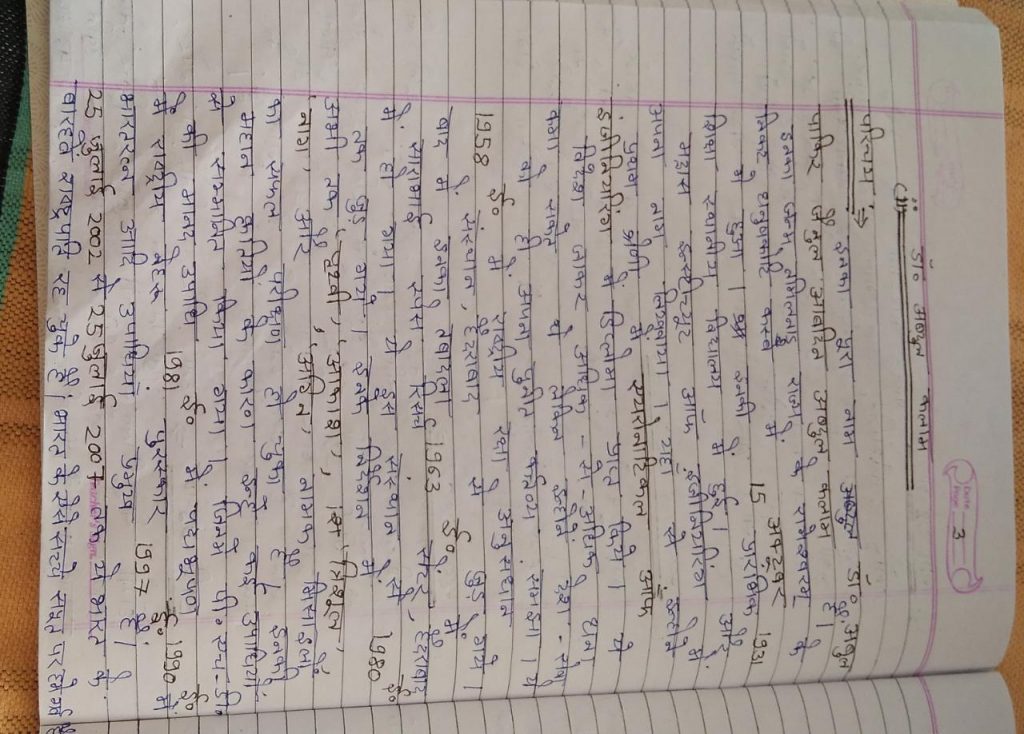 Date
Page 3
डॉ० अब्दुल कलाम
परिचय ⇒ इनका पूरा नाम डॉ० अबुल
पाकिर जैनुल आबदिन अब्दुल कलाम है।
इनका जन्म तमिलनाडु राज्य के रामेश्वरम्
के धनुषकोटि में 15 अक्टूबर 1931
में हुआ। इनकी प्रारंभिक
शिक्षा स्थानीय विद्यालय में हुई। और
मद्रास इन्स्टीट्यूट ऑफ इंजीनियरिंग में
अपना नाम लिखवाया। यहाँ से इन्होंने
प्रथम श्रेणी में ऑफ
इंजीनियरिंग में डिप्लोमा प्राप्त किये। ये
विदेश जाकर अधिक-से-अधिक धन
कमा सकते थे लेकिन इन्होंने देश-सेवा
को ही अपना पुनीत कर्त्तव्य समझा। ये
1958 ई० में राष्ट्रीय रक्षा अनुसंधान
संस्थान, हैदराबाद से जुड़ गये।
बाद में इनका तबादला 1963 ई० में
साराभाई स्पेस रिसर्च सेंटर, हैदराबाद
में हो गया। ये इस संस्थान से 1980 ई०
तक जुड़े रहे। इनके निर्देशन में
अभी तक 'पृथ्वी', 'आकाश', 'त्रिशूल'
'नाग' और 'अग्नि' नामक मिसाइलों
का सफल परीक्षण हो चुका है। इनकी
महान के कारण इन्हें कई उपाधियों
से सम्मानित किया गया। जिनमें पी० एच-डी०
की मानद उपाधि 1981 ई० में पद्मभूषण 1990 ई० में
में राष्ट्रीय नेहरू पुरस्कार 1997 ई० में
भारतरत्न आदि उपाधियाँ प्रमुख हैं।
25 जुलाई 2002 से 25 जुलाई 2007 तक ये भारत के
बारहवें राष्ट्रपति रह चुके हैं। भारत के